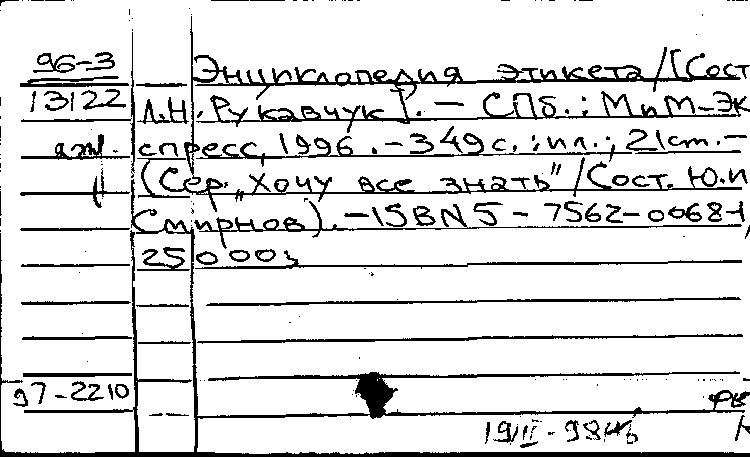 96-3 Энциклопедия этикета / [Сост
13122 Л.Н. Рукавчук]. — СПб.: МиМ-Эк
спресс, 1996. - 349 с. : ил.; 21 см. -
(Сер. „Хочу все знать" / Сост. Ю.И
Смирнов). - ISBN 5-7562-0068-1,
25000 э
97-2210
19/II-98